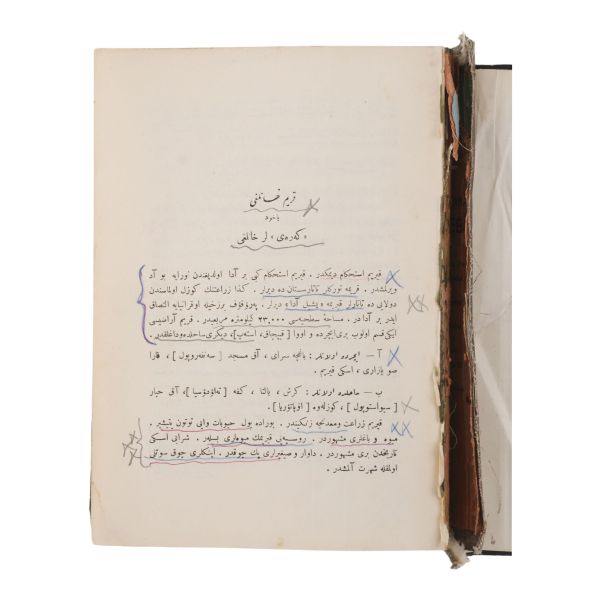 قریم خانلغی
یاخود
«كه‌ره‌ی» لر خانلغی
قیریم استحكام دیمكدر . قیریم استحكام كبی بر آدا اولدیغندن اورایه بو آد
ویرلمشدر . قریمه توركلر تاتارستان ده دیرلر . كذا زراعتنك كوزل اولماسندن
دولایی ده تاتارلر قیریمه «یشیل آدا» دیرلر . پره‌قوف برزخیله اوقرانیایه التصاق
ایدر بر آدادر . مساحهٔ سطحیه‌سی ۳۳،۰۰۰ كیلومتره مربعیدر . قیریم آراضیسی
ایكی قسم اولوب بری ایچرده و اووا [ قپچاق، استه‌پ ]، دیكری ساحلده وداغلقدر .
آ — ایچرده اولانلر : باغچه سرای، آق مسجد [ سه‌نفه‌روپول ] ، قارا
صو بازاری ، اسكی قیریم .
ب — ساحلده اولانلر : كرش، یالتا ، كفه [ ته‌اودوسیا ]، آق حیار
[ سیواستوپول ] ، كوزله‌وه [ اوپاتوریا ] .
قیریم زراعت ومعدنجه زنكیندر . بوراده بول حبوبات وایی توتون یتیشیر .
میوه و باغلری مشهوردر . روسیه‌یی قیریمك میوه‌لری بسلر . شرابی اسكی
تاریخدن بری مشهوردر . داوار و صیغیرلری پك چوقدر . اینكلری چوق سوتلی
اولمقله شهرت آلمشدر .